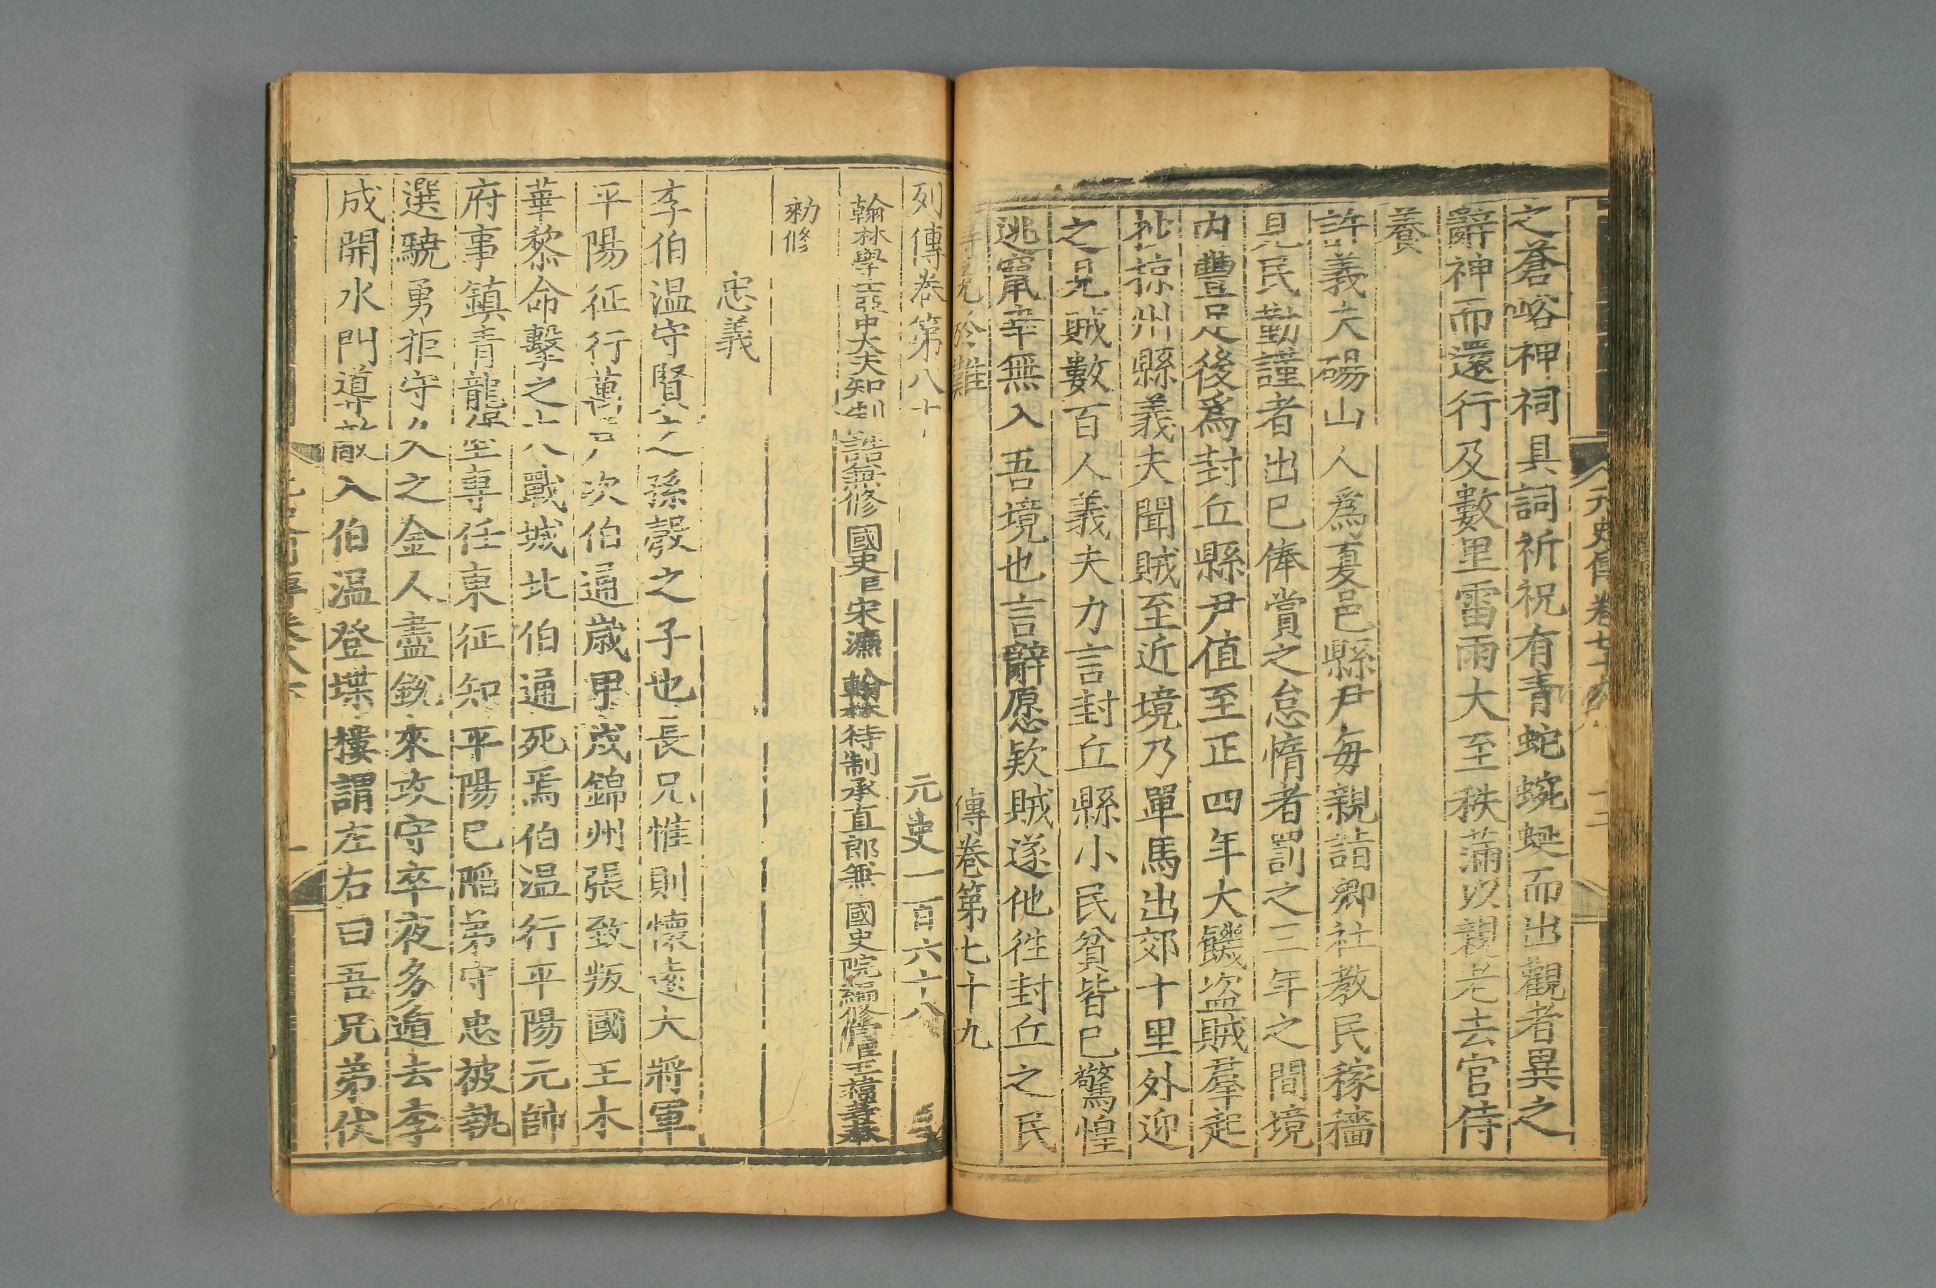 之蒼峪神祠具詞祈祝有青蛇蜿蜒而出觀者異之
辭神而還行及數里雷雨大至秩滿以親老去官侍
養
許義夫碭山人爲夏邑縣尹每親詣鄉社教民稼穡
見民勤謹者出已俸賞之怠惰者罰之三年之間境
内豐足後爲封丘縣尹值至正四年大饑盗賊羣起
抄掠州縣義夫聞賊至近境乃單馬出郊十里外迎
之見賊數百人義夫力言封丘縣小民貧皆已驚惶
逃竄幸無入吾境也言辭愿欵賊遂他徃封丘之民
得免於難
傳卷第七十九
列傳卷第八十
元史一百六十八
翰林學士亞中大夫知制誥無修國史臣宋濂翰林待制承直郎無國史院編修官臣王禕等奉
勑修
忠義
李伯温守賢之孫彀之子也長兄惟則懷遠大將軍
平陽征行萬户次伯通歲甲戌錦州張致叛國王木
華黎命擊之大戰城北伯通死焉伯温行平陽元帥
府事鎮青龍堡專任東征知平陽已陷弟守忠被執
選驍勇拒守久之金人盡銳來攻守卒夜多遁去李
成開水門導敵入伯温登堞樓謂左右曰吾兄弟仗